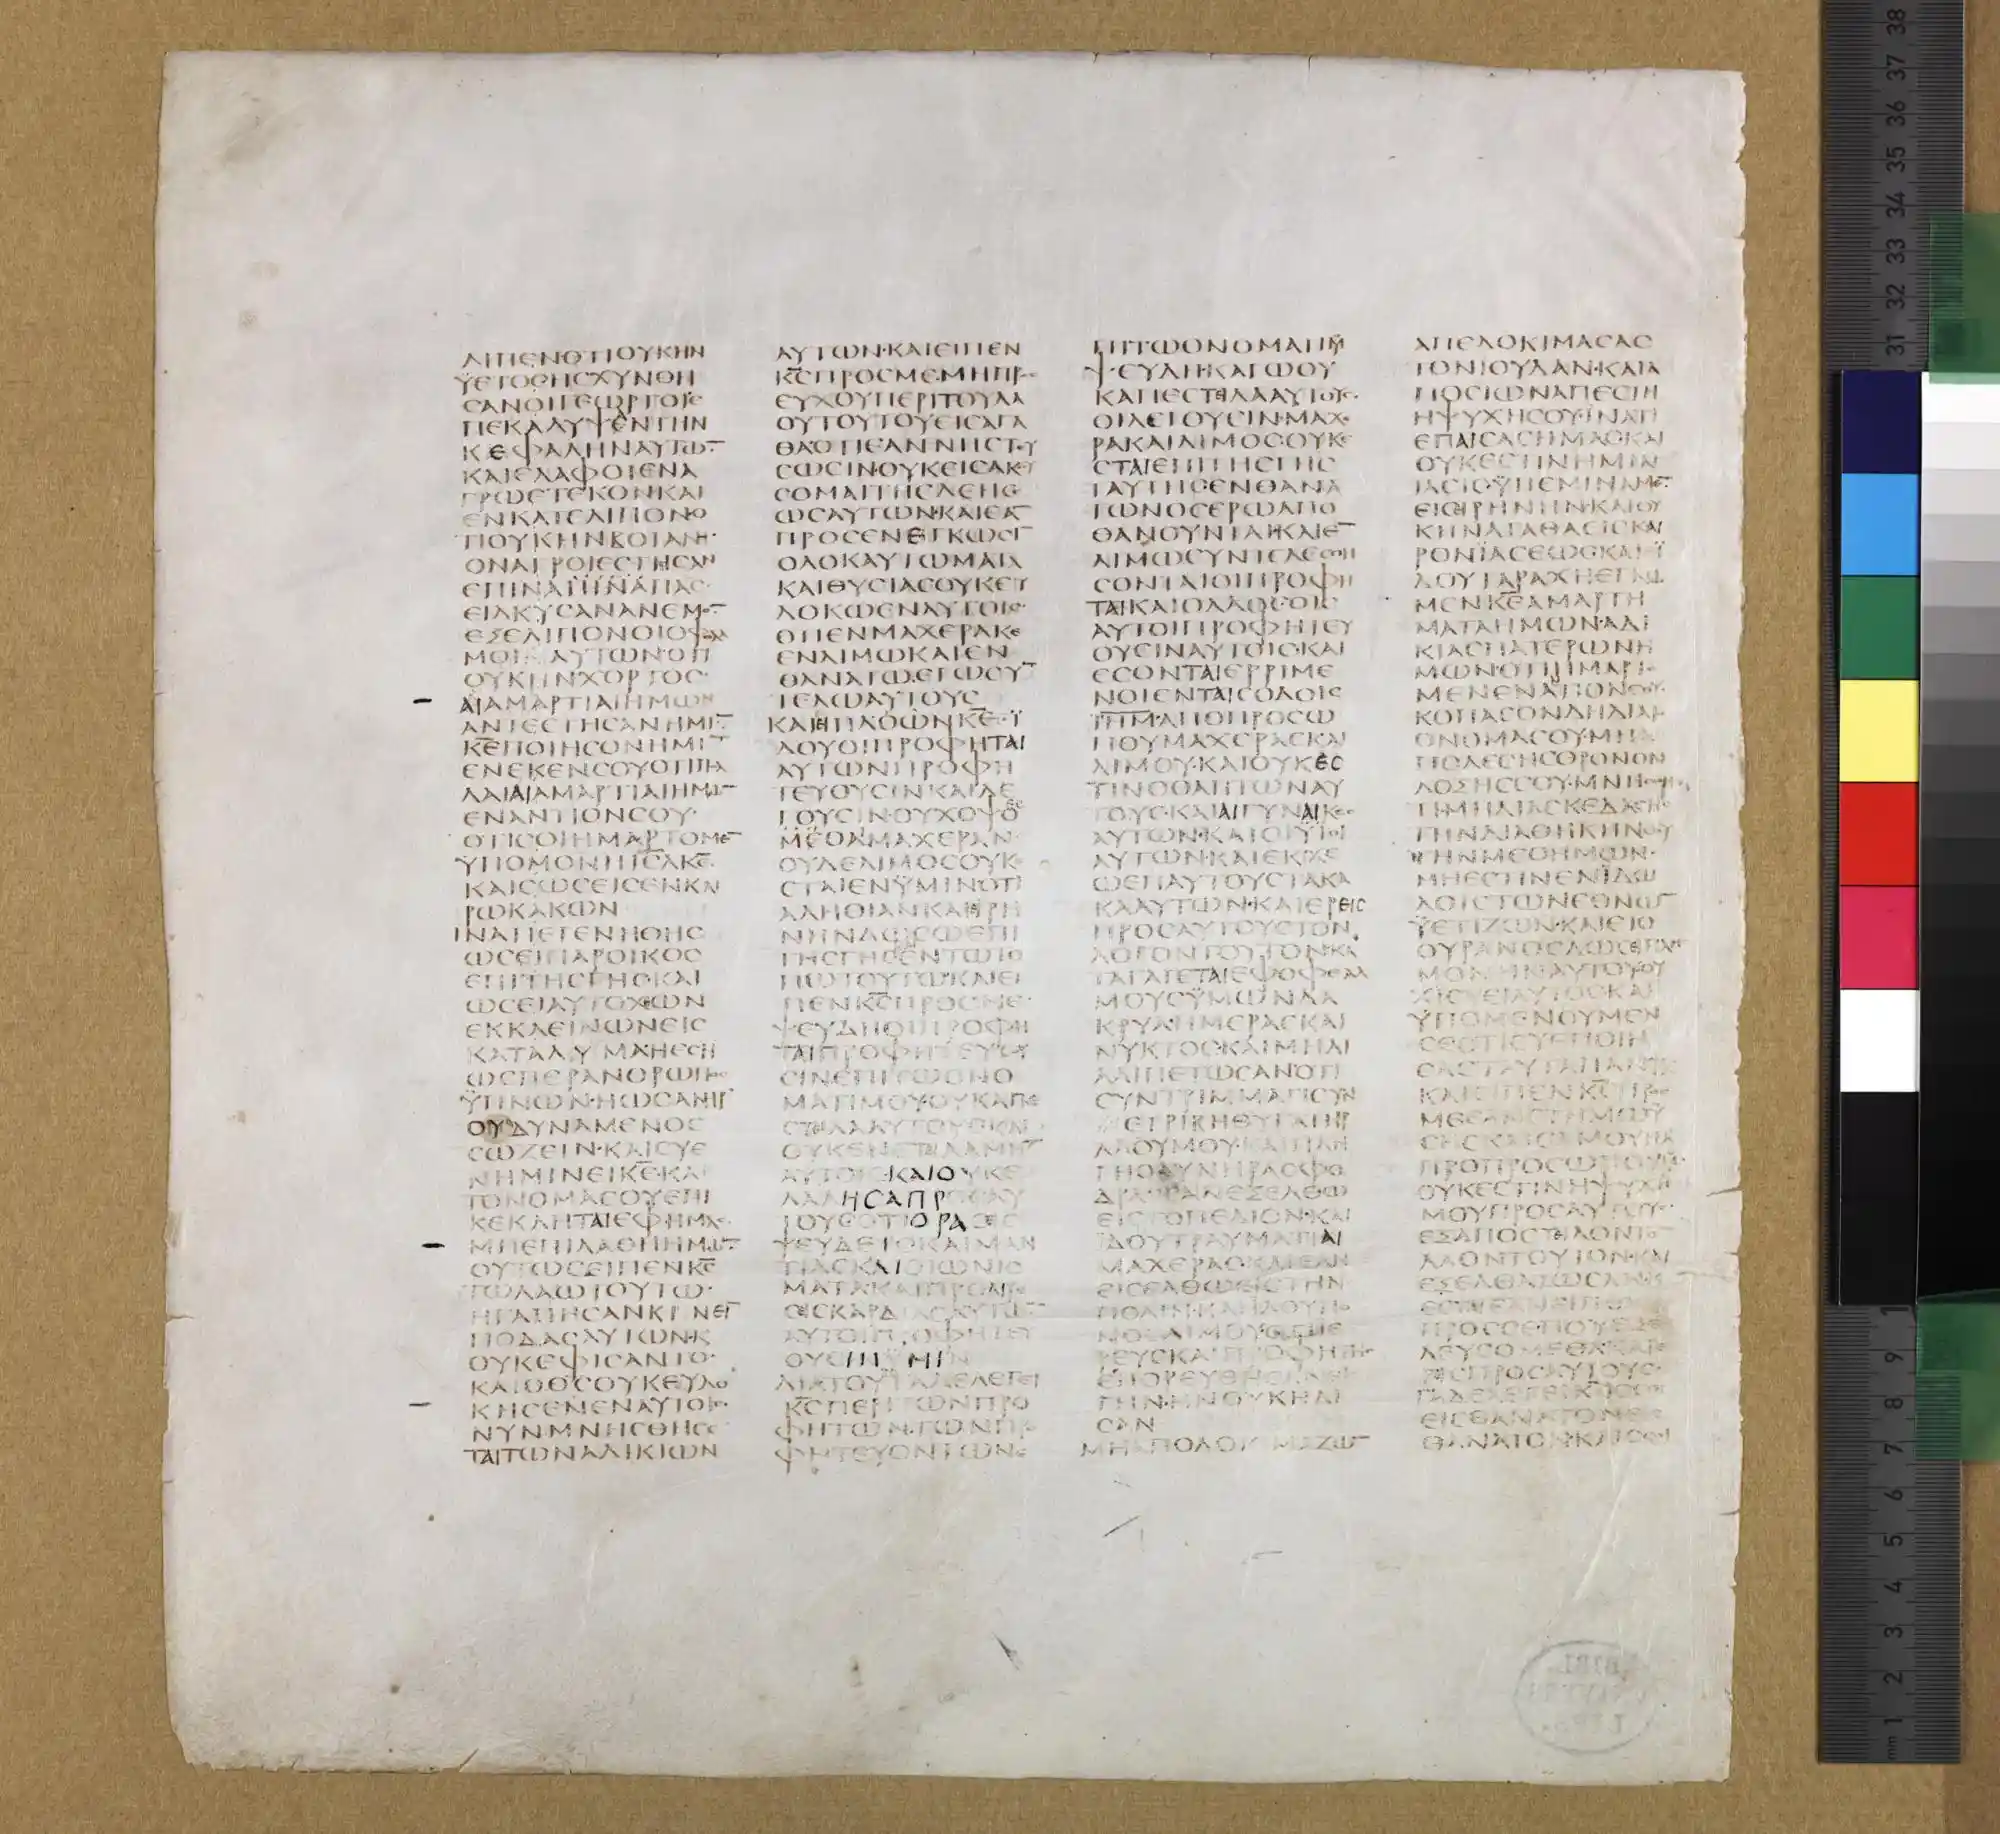 ΛΙΠΕΝΟΤΙΟΥΚΗΝ
ΫΕΤΟΣΗΣΧΥΝΘΗ
ΣΑΝΟΙΓΕΩΡΓΟΙΕ
ΠΕΚΑΛΥΨΕΝΤΗΝ
ΚΕΦΑΛΗΝΑΥΤΩ̅
ΚΑΙΕΛΑΦΟΙΕΝΑ
ΓΡΩΕΤΕΚΟΝΚΑΙ
ΕΝΚΑΤΕΛΙΠΟΝΟ
ΤΙΟΥΚΗΝΒΟΤΑΝΗ·
ΟΝΑΓΡΟΙΕΣΤΗΣΑΝ
ΕΠΙΝΑΠΑΣ
ΕΙΛΚΥΣΑΝΑΝΕΜΟ̅
ΕΞΕΛΙΠΟΝΟΙΟΦΘΑΛ
ΜΟΙΑΥΤΩΝΟΤΙ
ΟΥΚΗΝΧΟΡΤΟΣ·
ΑΙΑΜΑΡΤΙΑΙΗΜΩΝ
ΑΝΤΕΣΤΗΣΑΝΗΜΙ̅
Κ̅Ε̅ΠΟΙΗΣΟΝΗΜΙ̅
ΕΝΕΚΕΝΣΟΥΟΤΙΠΟΛ
ΛΑΙΑΙΑΜΑΡΤΙΑΙΗΜΩ̅
ΕΝΑΝΤΙΟΝΣΟΥ·
ΟΤΙΣΟΙΗΜΑΡΤΟΜΕ̅
ΫΠΟΜΟΝΗΙΣΛΚ̅Ε̅
ΚΑΙΣΩΣΕΙΣΕΝΚΑΙ
ΡΩΚΑΚΩΝ
ΙΝΑΤΙΕΓΕΝΗΘΗΣ
ΩΣΕΙΠΑΡΟΙΚΟΣ
ΕΠΙΤΗΣΓΗΣΚΑΙ
ΩΣΕΙΑΥΤΟΧΘΩΝ
ΕΚΚΛΕΙΝΩΝΕΙΣ
ΚΑΤΑΛΥΜΑΜΗΕΣΗ
ΩΣΠΕΡΑΝΘΡΩΠΟΣ
ΫΠΝΩΝ·ΗΩΣΑΝΗΡ
ΟΥΔΥΝΑΜΕΝΟΣ
ΣΩΖΕΙΝ·ΚΑΙΣΥΕ
ΝΗΜΙΝΕΙΚ̅Ε̅·ΚΑΙ
ΤΟΝΟΜΑΣΟΥΕΠΙ
ΚΕΚΛΗΤΑΙΕΦΗΜΑΣ·
ΜΗΕΠΙΛΑΘΗΗΜΩ̅
ΟΥΤΩΣΕΙΠΕΝΚ̅Σ̅
ΤΩΛΑΩΤΟΥΤΩ·
ΗΓΑΠΗΣΑΝΚΙΝΕΙ̅
ΠΟΔΑΣΑΥΤΩΝ·Κ
ΟΥΚΕΦΙΣΑΝΤΟ·
ΚΑΙΟΘ̅Σ̅ΟΥΚΕΥΔΟ
ΚΗΣΕΝΕΝΑΥΤΟΙΣ·
ΝΥΝΜΝΗΣΘΗΣΕ
ΤΑΙΤΩΝΑΔΙΚΙΩΝ
ΑΥΤΩΝ·ΚΑΙΕΙΠΕΝ
Κ̅Σ̅ΠΡΟΣΜΕ·ΜΗΠΡΟ
ΕΥΧΟΥΠΕΡΙΤΟΥΛΑ
ΟΥΤΟΥΤΟΥΕΙΣΑΓΑ
ΘΑ·ΟΤΙΕΑΝΝΗΣΤΕΥ
ΣΩΣΙΝ·ΟΥΚΕΙΣΑΚΟΥ
ΣΟΜΑΙΤΗΣΔΕΗΣΕ
ΩΣΑΥΤΩΝ·ΚΑΙΕΑ̅
ΠΡΟΣΕΝΕΓΚΩΣΙ̅
ΟΛΟΚΑΥΤΩΜΑΤΑ
ΚΑΙΘΥΣΙΑΣΟΥΚΕΥ
ΔΟΚΩΕΝΑΥΤΟΙΣ·
ΟΤΙΕΝΜΑΧΕΡΑΚΕ
ΕΝΛΙΜΩΚΑΙΕΝ
ΘΑΝΑΤΩ·ΕΓΩΣΥ̅
ΤΕΛΩΑΥΤΟΥΣ
ΚΑΙΕΙΠΑΟΩΝΚ̅Ε̅·Ϊ
ΔΟΥΟΙΠΡΟΦΗΤΑΙ
ΑΥΤΩΝΠΡΟΦΗ
ΤΕΥΟΥΣΙΝΚΑΙΛΕ
ΓΟΥΣΙΝ·ΟΥΧΟΨΕΣ
ΘΕΜΑΧΕΡΑΝ·
ΟΥΔΕΛΙΜΟΣΟΥΚ
ΣΤΑΙΕΝΫΜΙΝΟΤΙ
ΑΛΗΘΙΑΝΚΑΙΕΙΡΗ
ΝΗΝΔΩΣΩΕΠΙ
ΤΗΣΓΗΣΕΝΤΩΤΟ
ΠΩΤΟΥΤΩ·ΚΑΙΕΙ
ΠΕΝΚ̅Σ̅ΠΡΟΣΜΕ·
ΨΕΥΔΗΟΙΠΡΟΦΗ
ΤΑΙΠΡΟΦΗΤΕΥΟΥ
ΣΙΝΕΠΙΤΩΟΝΟ
ΜΑΤΙΜΟΥ·ΟΥΚΑΠΕ
ΣΤΙΛΑΑΥΤΟΥΣΚΑΙ
ΟΥΚΕΝΕΤΙΛΑΜΗ̅
ΑΥΤΟΙΣ·ΚΑΙΟΥΚΕ
ΛΑΛΗΣΑΠΡΟΣΑΥ
ΤΟΥΣΟΤΙΟΡΑΣΕΙΣ
ΨΕΥΔΕΙΣΚΑΙΜΑΝ
ΤΙΑΣΚΑΙΟΙΩΝΙΣ
ΜΑΤΑ·ΚΑΙΠΡΟΑΙΡΕ
ΣΕΙΣΚΑΡΔΙΑΣΑΥΤΩ̅
ΑΥΤΟΙΠΡΟΦΗΤΕΥ
ΟΥΣΙΝΫΜΙΝ
ΔΙΑΤΟΥΤΑΔΕΛΕΓΕΙ
Κ̅Σ̅ΠΕΡΙΤΩΝΠΡΟ
ΦΗΤΩΝ·ΤΩΝΠΡΟ
ΦΗΤΕΥΟΝΤΩΝΕ
ΠΙΤΩΟΝΟΜΑΤΙΜΟΥ
ΨΕΥΔΗ·ΚΑΓΩΟΥ
ΚΑΠΕΣΤΙΛΑΑΥΤΟΥΣ·
ΟΙΛΕΓΟΥΣΙΝ·ΜΑΧΑΙ
ΡΑΚΑΙΛΙΜΟΣΟΥΚΕ
ΣΤΑΙΕΠΙΤΗΣΓΗΣ
ΤΑΥΤΗΣΕΝΘΑΝΑ
ΤΩΝΟΣΕΡΩΑΠΟ
ΘΑΝΟΥΝΤΑΙ·ΚΑΙΕ̅
ΛΙΜΩΣΥΝΤΕΛΕΣΘΗ
ΣΟΝΤΑΙΟΙΠΡΟΦΗ
ΤΑΙΚΑΙΟΛΑΟΣ·ΟΙΣ
ΑΥΤΟΙΠΡΟΦΗΤΕΥ
ΟΥΣΙΝΑΥΤΟΙΣ·ΚΑΙ
ΕΣΟΝΤΑΙΕΡΡΙΜΕ
ΝΟΙΕΝΤΑΙΣΟΔΟΙΣ
ΙΗ̅Μ̅·ΑΠΟΠΡΟΣΩ
ΠΟΥΜΑΧΕΡΑΣΚΑΙ
ΛΙΜΟΥ·ΚΑΙΟΥΚΕΣ
ΤΙΝΟΘΑΠΤΩΝΑΥ
ΤΟΥΣ·ΚΑΙΑΙΓΥΝΑΙΚΕΣ
ΑΥΤΩΝ·ΚΑΙΟΙΫΙΟΙ
ΑΥΤΩΝ·ΚΑΙΕΚΧΕ
ΩΕΠΑΥΤΟΥΣΤΑΚΑ
ΚΑΑΥΤΩΝ·ΚΑΙΕΡΕΙΣ
ΠΡΟΣΑΥΤΟΥΣΤΟΝ
ΛΟΓΟΝΤΟΥΤΟΝΚΑ
ΤΑΓΑΓΕΤΑΙΕΠΟΦΘΑΛ
ΜΟΥΣΫΜΩΝΔΑ
ΚΡΥΑ·ΗΜΕΡΑΣΚΑΙ
ΝΥΚΤΟΣ·ΚΑΙΜΗΔΙ
ΑΛΙΠΕΤΩΣΑΝΟΤΙ
ΣΥΝΤΡΙΜΜΑΤΙΣΥΝ
ΕΤΡΙΒΗΘΥΓΑΤΗΡ
ΛΑΟΥΜΟΥ·ΚΑΙΠΛΗ
ΓΗΟΔΥΝΗΡΑΣΦΟ
ΔΡΑ·ΕΑΝΕΞΕΛΘΩ
ΕΙΣΤΟΠΕΔΙΟΝ·ΚΑΙ
ΪΔΟΥΤΡΑΥΜΑΤΙΑΙ
ΜΑΧΕΡΑΣΚΑΙΕΑΝ
ΕΙΣΕΛΘΩΕΙΣΤΗΝ
ΠΟΛΙΝ·ΚΑΙΪΔΟΥΠΟ
ΝΟΣΛΙΜΟΥΟΤΙΙΕ
ΡΕΥΣΚΑΙΠΡΟΦΗΤΗΣ
ΕΠΟΡΕΥΘΗΣΑΝΕΙΣ
ΓΗΝ·ΗΝΟΥΚΗΔΙ
ΣΑΝ
ΜΗΑΠΟΔΟΚΙΜΑΖΩ̅
ΑΠΕΔΟΚΙΜΑΣΑΣ
ΤΟΝΙΟΥΔΑΝ·ΚΑΙΑ
ΠΟΣΙΩΝΑΠΕΣΤΗ
ΗΨΥΧΗΣΟΥ·ΪΝΑΤΙ
ΕΠΑΙΣΑΣΗΜΑΣΚΑΙ
ΟΥΚΕΣΤΙΝΗΜΙΝ
ΙΑΣΙΣΫΠΕΜΙΝΑΜΕ̅
ΕΙΣΙΡΗΝΗΝ·ΚΑΙΟΥ
ΚΗΝΑΓΑΘΑΣΙΣΚΑΙ
ΡΟΝΪΑΣΕΩΣΚΑΙΪ
ΔΟΥΤΑΡΑΧΗΕΓΝΩ
ΜΕΝΚ̅Ε̅ΑΜΑΡΤΗ
ΜΑΤΑΗΜΩΝ·ΑΔΙ
ΚΙΑΣΠΑΤΕΡΩΝΗ
ΜΩΝ·ΟΤΙΗΜΑΡΤΟ
ΜΕΝΕΝΑΝΤΙΟΝΣΟΥ·
ΚΟΠΑΣΟΝΔΙΑΔΙΑΤΟ
ΟΝΟΜΑΣΟΥ·ΜΗΑ
ΠΟΛΕΣΗΣΘΡΟΝΟΝ
ΔΟΞΗΣΣΟΥ·ΜΝΗΣΘΗΤΙ
ΤΙΜΗΔΙΑΣΚΕΔΑΣΗΣ
ΤΗΝΔΙΑΘΗΚΗΝΣΟΥ
ΤΗΝΜΕΘΗΜΩΝ·
ΜΗΕΣΤΙΝΕΝΪΔΩ
ΛΟΙΣΤΩΝΕΘΝΩ̅
ΫΕΤΙΖΩΝ·ΚΑΙΕΙΟ
ΟΥΡΑΝΟΣΔΩΣΕΙΠΛΗΣ
ΜΟΝΗΝΑΥΤΟΥΟΥ
ΧΙΣΥΕΙΑΥΤΟΣΚΑΙ
ΫΠΟΜΕΝΟΥΜΕΝ
ΣΕΟΤΙΣΥΕΠΟΙΗ
ΣΑΣΤΑΥΤΑΠΑΝΤΑ
ΚΑΙΕΙΠΕΝΚ̅Σ̅ΠΡΟΣ
ΜΕΕΑΝΣΤΗΜΩΫ
ΣΗΣΚΑΙΣΑΜΟΥΗΛ
ΠΡΟΠΡΟΣΩΠΟΥΜΟΥ·
ΟΥΚΕΣΤΙΝΗΨΥΧΗ
ΜΟΥΠΡΟΣΑΥΤΟΥΣ·
ΕΞΑΠΟΣΤΙΛΟΝΤΟ̅
ΛΑΟΝΤΟΥΤΟΝ·ΚΑΙ
ΕΞΕΛΘΑΤΩΣΑΝ·Κ
ΕΣΤΑΙΕΑΝΕΙΠΩΣΙ
ΠΡΟΣΣΕ·ΠΟΥΕΞΕ
ΛΕΥΣΟΜΕΘΑ·ΚΑΙΕ
ΡΙΣΠΡΟΣΑΥΤΟΥΣ·
ΤΑΔΕΛΕΓΕΙΚ̅Σ̅ΟΣΟΙ
ΕΙΣΘΑΝΑΤΟΝΕΙΣ
ΘΑΝΑΤΟΝ·ΚΑΙΟΣΟΙ